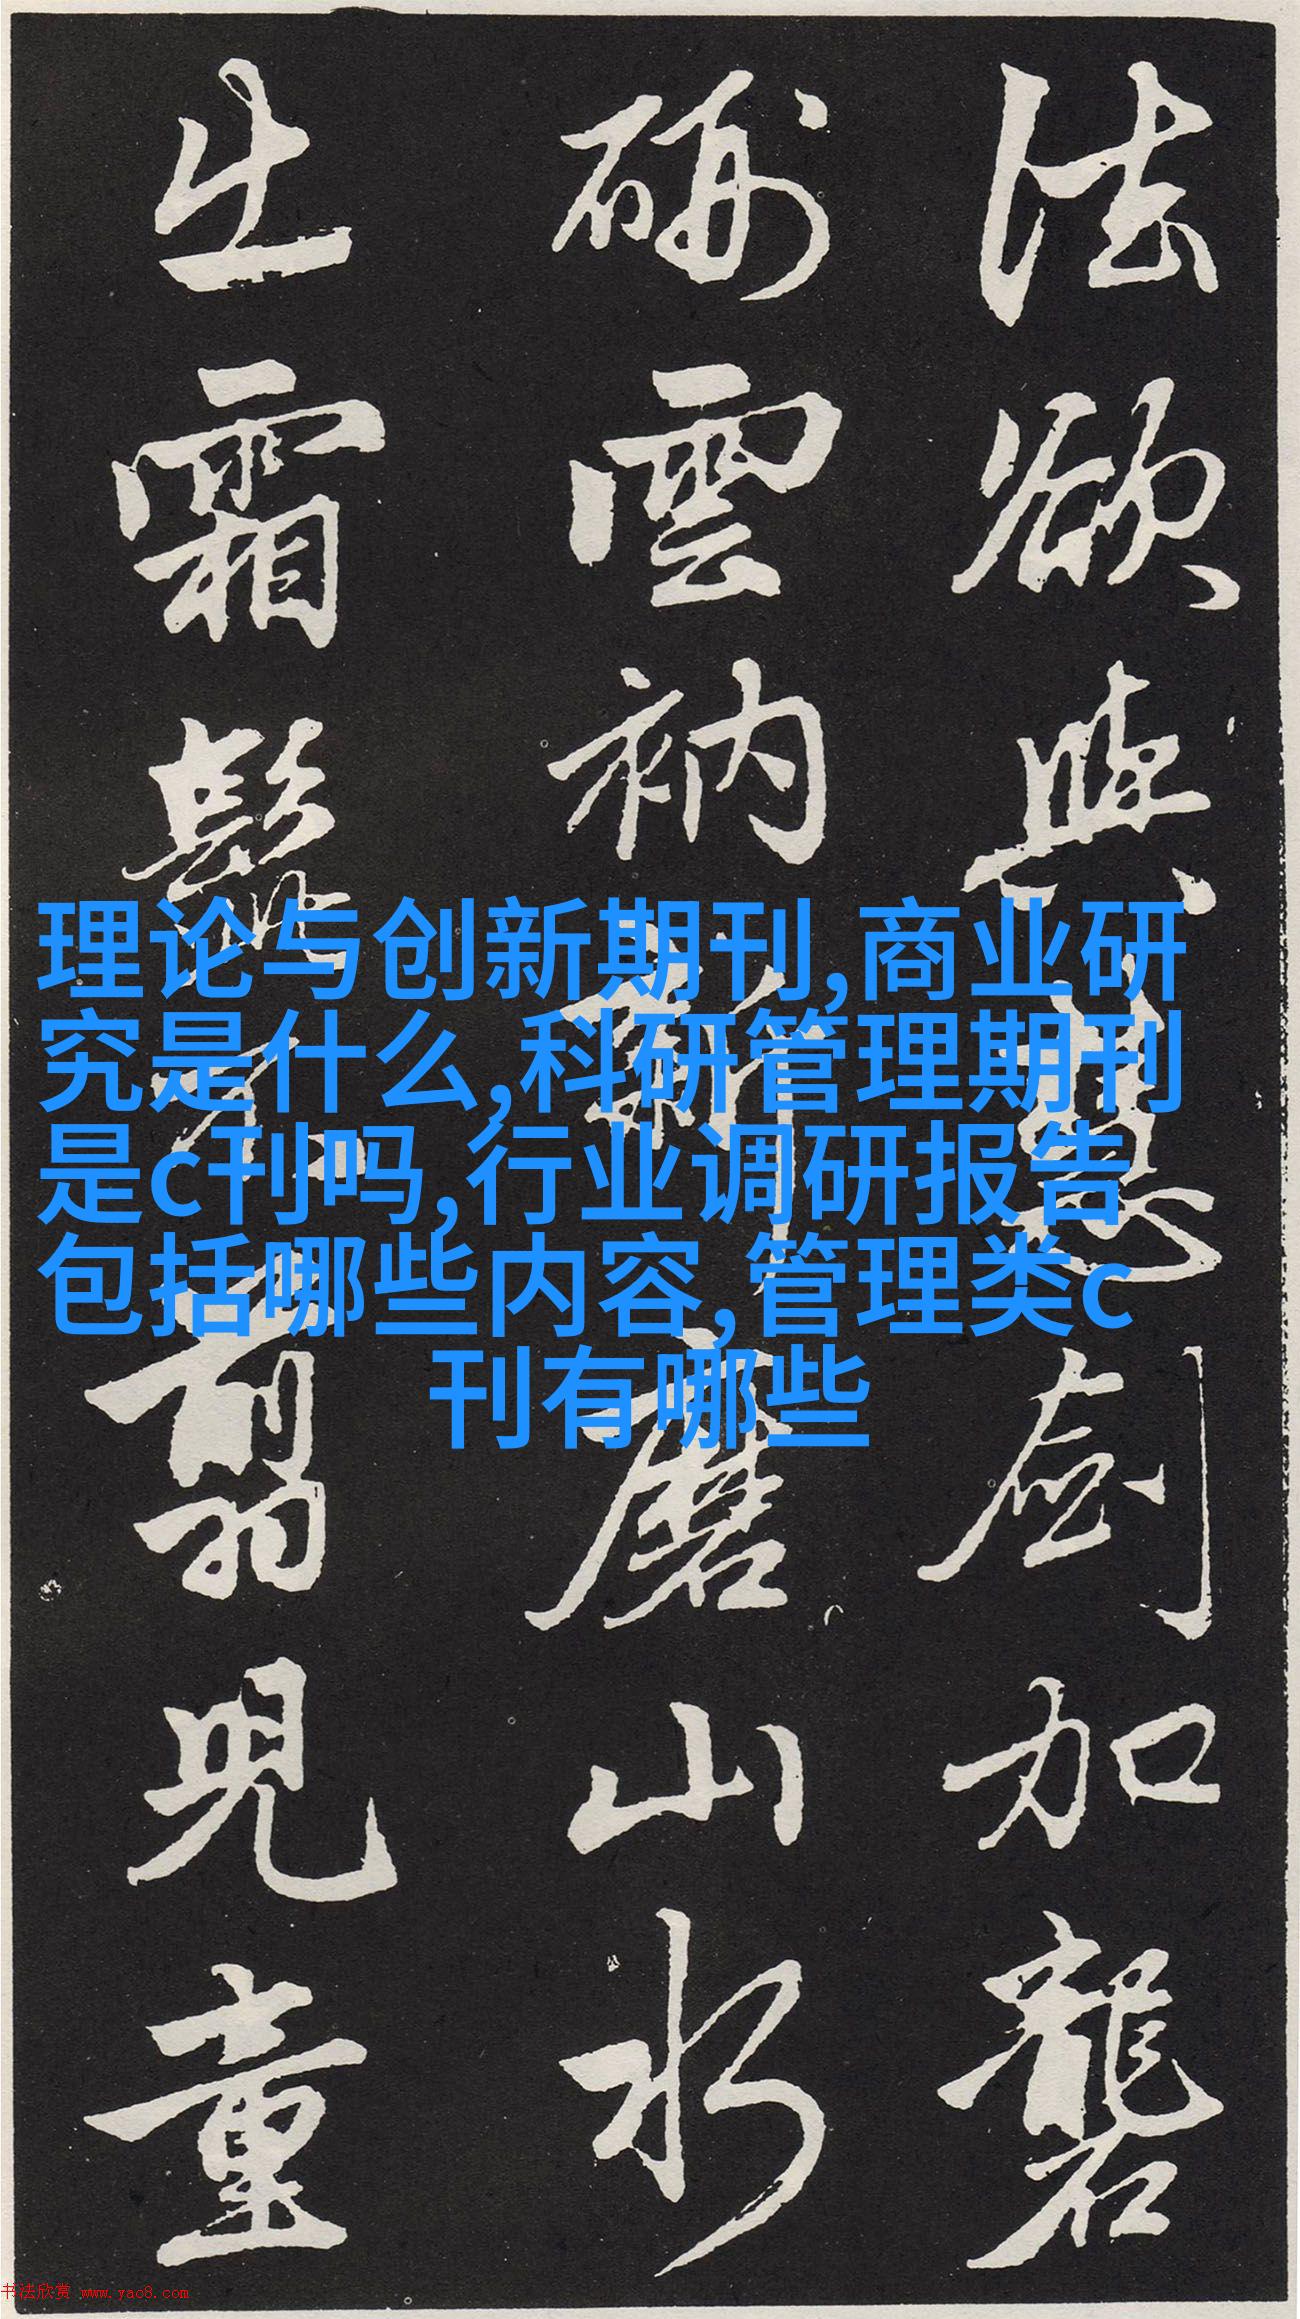 法欲與慧劍加礱
硎雲衲新磨山水
出霜髭不翦兒童
理论与创新期刊,商业研
究是什么,科研管理期刊
是c刊吗,行业调研报告
包括哪些内容,管理类c
刊有哪些
书法欣赏 www.yac8.com